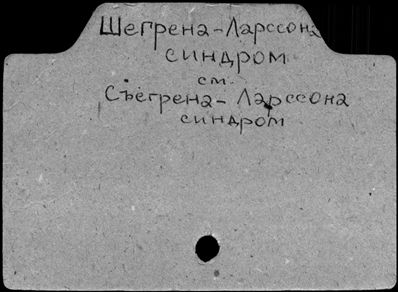 Шегрена-Ларссона
синдром
см.
Съегрена-Ларссона
синдром